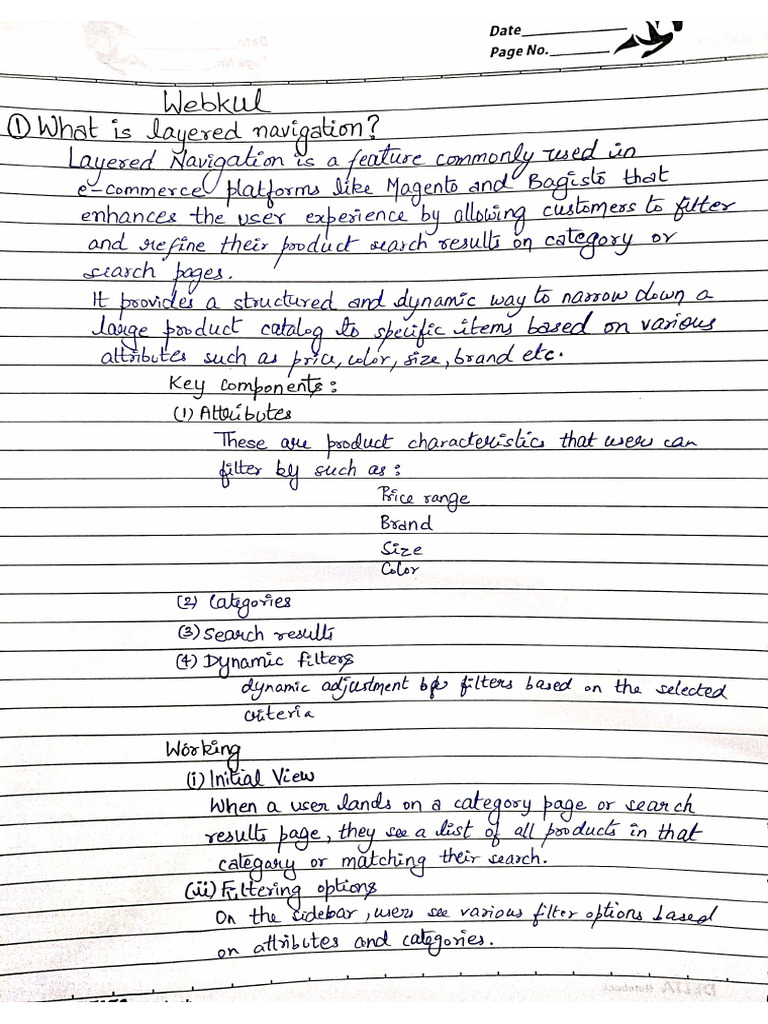 Date
Page No.
Webkul
① What is layered navigation?
Layered Navigation is a feature commonly used in
e-commerce platforms like Magento and Bagisto that
enhances the user experience by allowing customers to filter
and refine their product search results on category or
search pages.
It provides a structured and dynamic way to narrow down a
large product catalog to specific items based on various
attributes such as price, color, size, brand etc.
Key components:
(1) Attributes
These are product characteristics that users can
filter by such as:
Price range
Brand
Size
Color
(2) Categories
(3) Search results
(4) Dynamic filters
dynamic adjustment of filters based on the selected
criteria
Working
(i) Initial View
When a user lands on a category page or search
results page, they see a list of all products in that
category or matching their search.
(iii) Filtering options
On the sidebar, users see various filter options based
on attributes and categories.